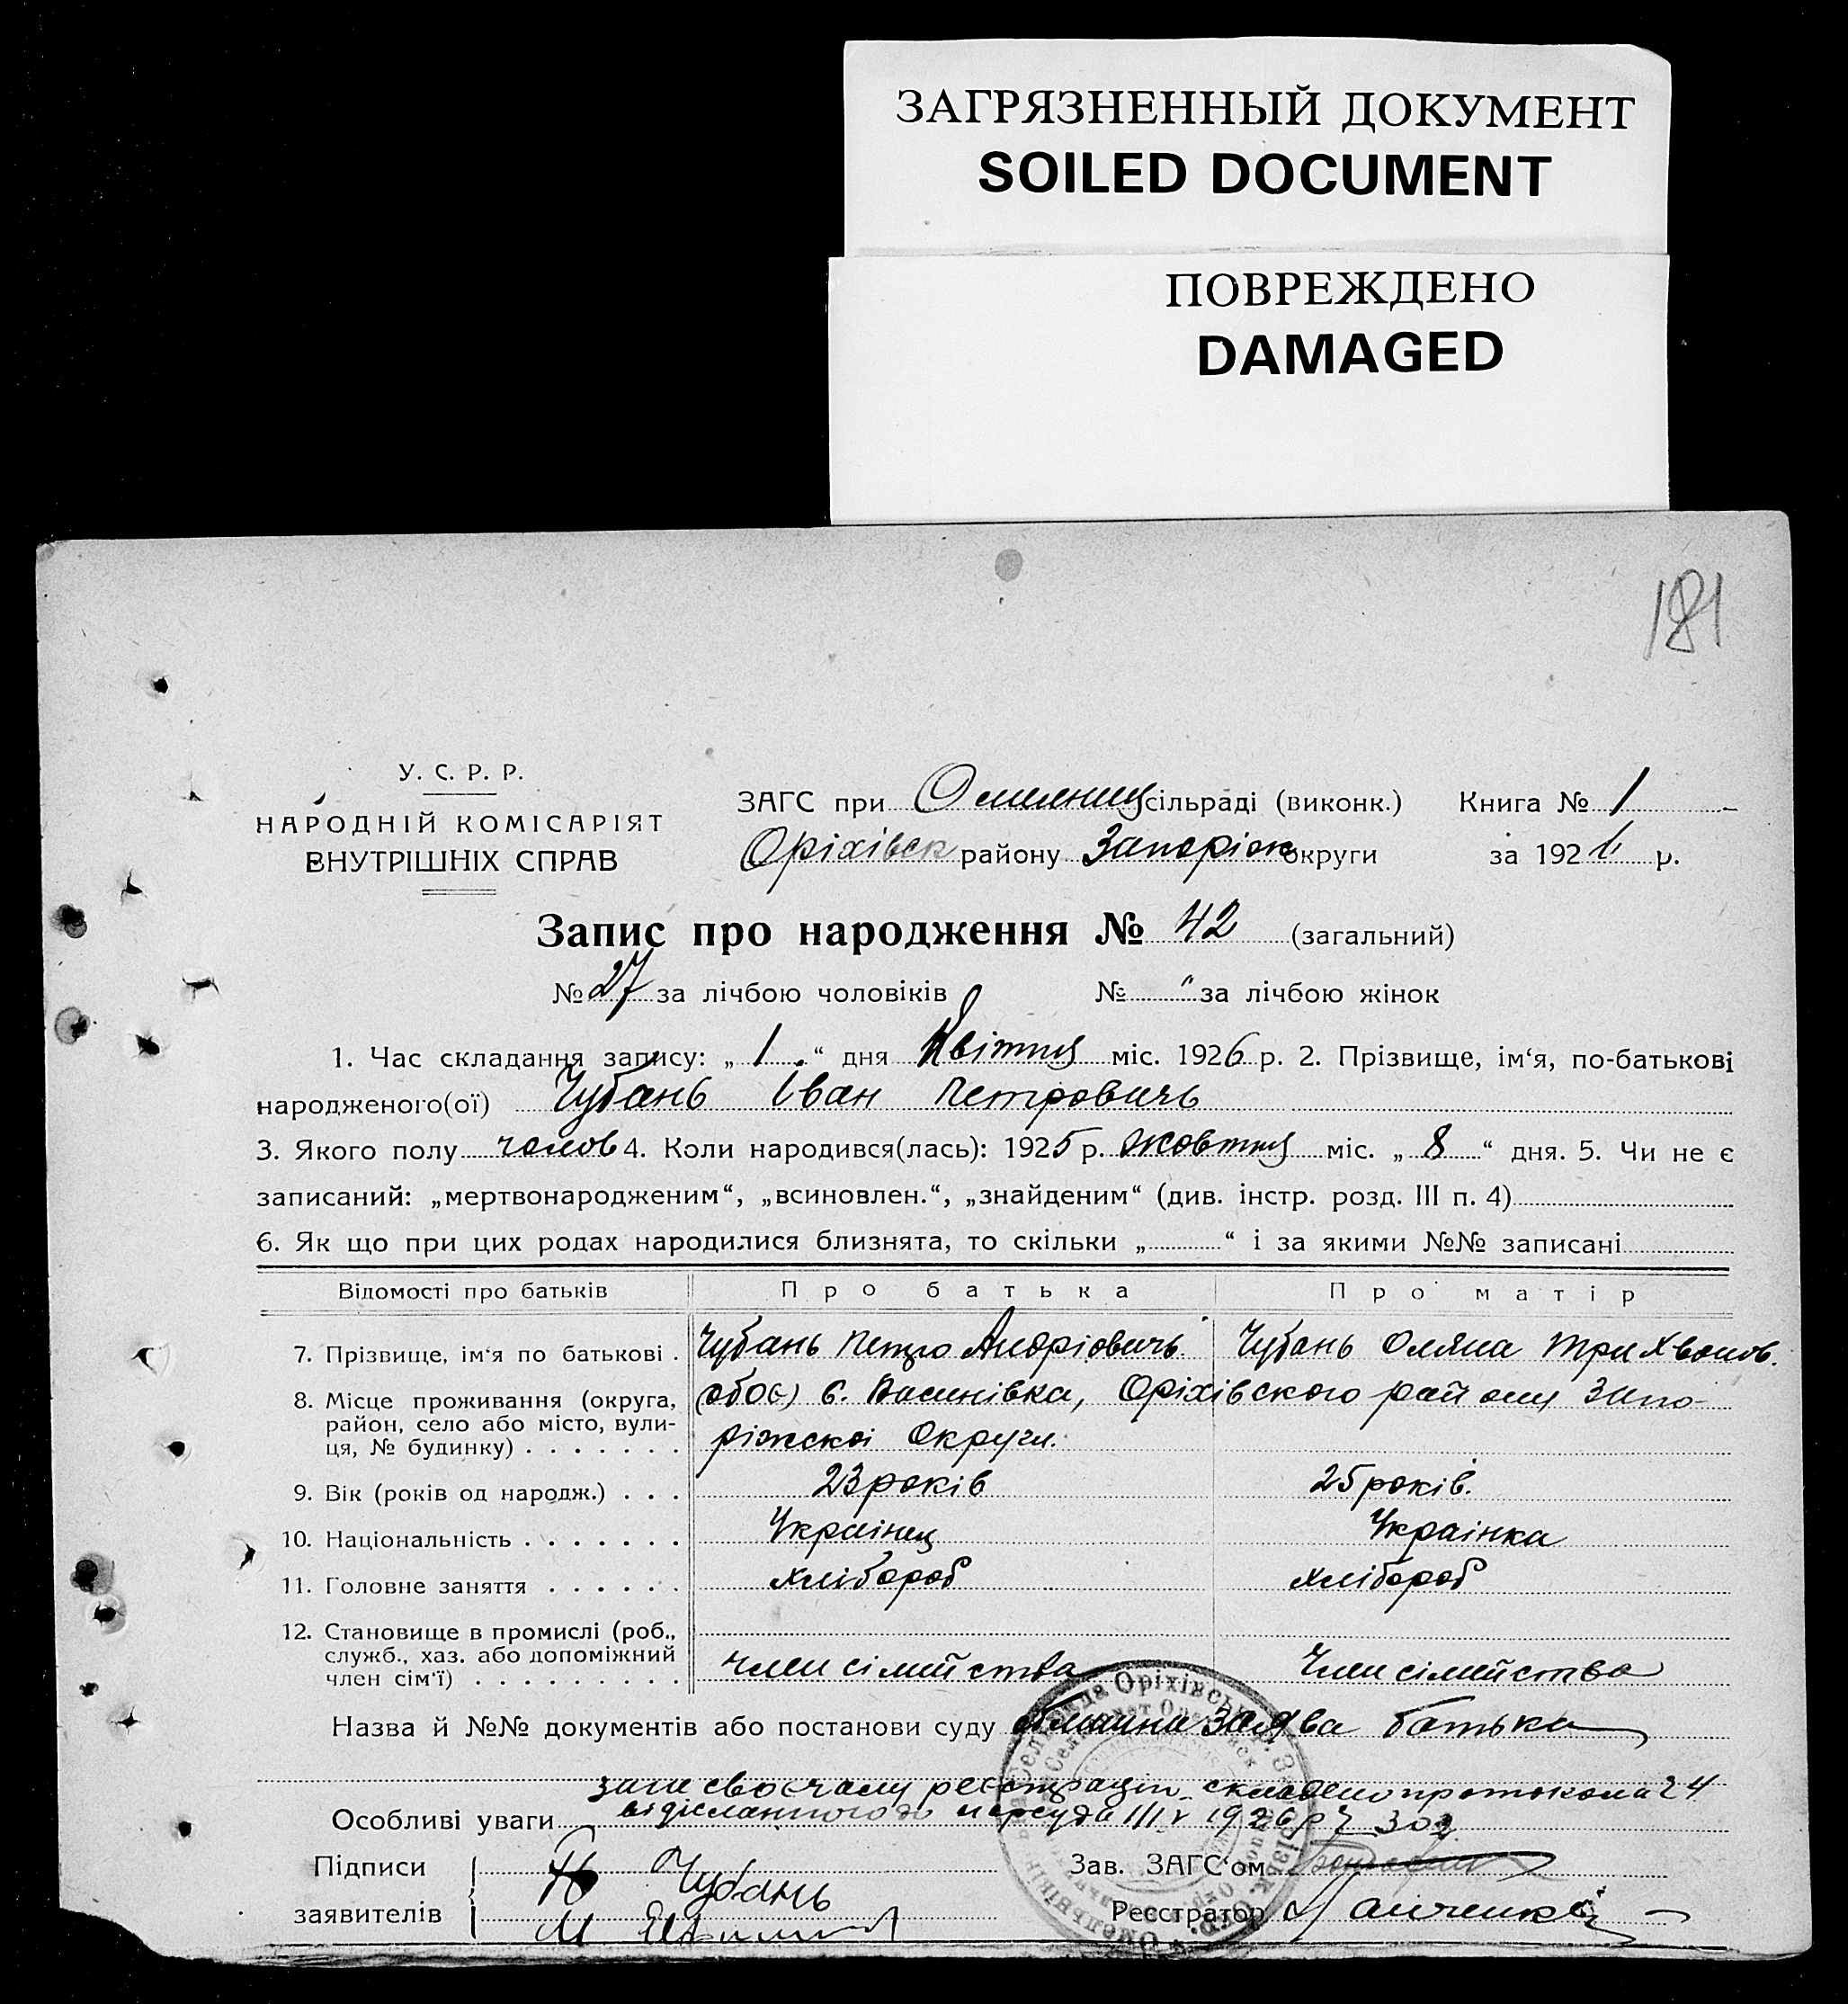 ЗАГРЯЗНЕННЫЙ ДОКУМЕНТ
SOILED DOCUMENT
ПОВРЕЖДЕНО
DAMAGED
181
У. С. Р. Р.
НАРОДНІЙ КОМІСАРІЯТ
ВНУТРІШНІХ СПРАВ
ЗАГС при сільраді (виконк.) Книга № 1
Оріхівск району Запоріж округи за 1926 р.
Запис про народження № 42 (загальний)
№ 27 за лічбою чоловіків № " за лічбою жінок
1. Час складання запису: „ 1 “ дня Квітня міс. 1926 р. 2. Прізвище, ім‘я, по-батькові
народженого(ої) Чубань Іван Петровичь
3. Якого полу чолов 4. Коли народився(лась): 1925 р. Жовтня міс. „ 8 “ дня. 5. Чи не є
записаний: „мертвонародженим“, „всиновлен.“, „знайденим“ (див. інстр. розд. III п. 4)
6. Як що при цих родах народилися близнята, то скільки „ “ і за якими №№ записані
Відомості про батьків Про батька Про матір
7. Прізвище, ім‘я по батькові . Чубань Петро Андріовичь Чубань Оляна Трихвонов.
8. Місце проживання (округа, район, село або місто, вулиця, № будинку) (обоє) с. Васинівка, Оріхівского району Запо-
ріжскоі Округи.
9. Вік (років од народж.) . . . 23 років 25 років.
10. Національність . . . . . . . Украінец Украінка
11. Головне заняття . . . . . . хлібороб хлібороб
12. Становище в промислі (роб., служб., хаз. або допоміжний член сім‘ї) . . . . . . . . . член сімийства Член сімийства
Назва й №№ документів або постанови суду заява батька
реєстрацію складено протокола 24
Особливі уваги нарсуда III 1926 р
Підписи Чубань Зав. ЗАГС‘ом
заявителів Реєстратор